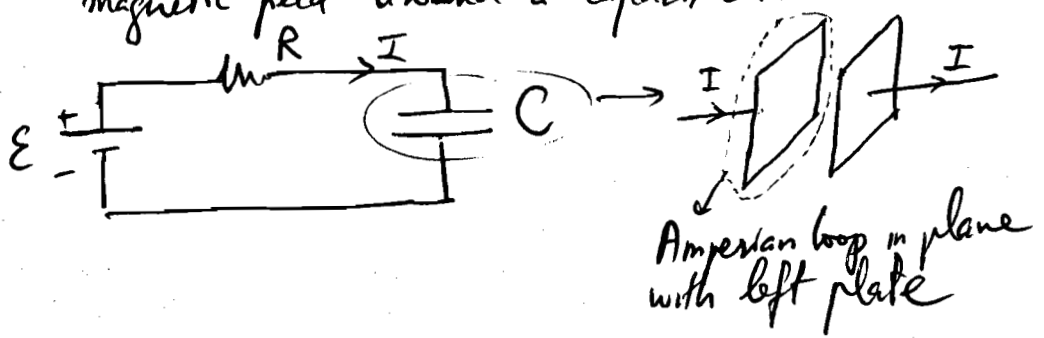 magnetic field around a
R
I
+
ε
-
C
I
I
Amperian loop in plane
with left plate